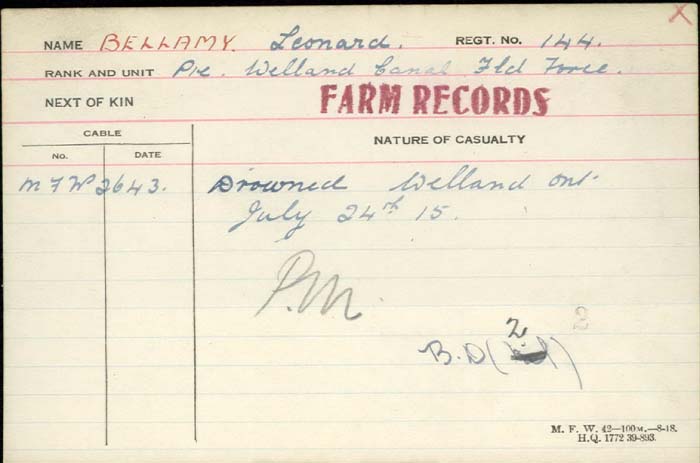 X
NAME BELLAMY. Leonard. REGT. NO. 144.
RANK AND UNIT Pte. Welland Canal Fld Force.
NEXT OF KIN FARM RECORDS
CABLE NATURE OF CASUALTY
NO. DATE
MFW 2643. Drowned Welland Ont.
July 24th 15.
P.M.
2 2
B.D( )
M. F. W. 42—100M.—8-18.
H.Q. 1772 39-893.